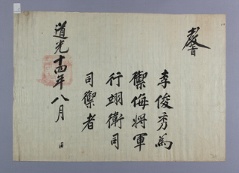 敎旨
李俊秀爲
禦侮將軍
行翊衛司
司禦者
道光十四年八月　日